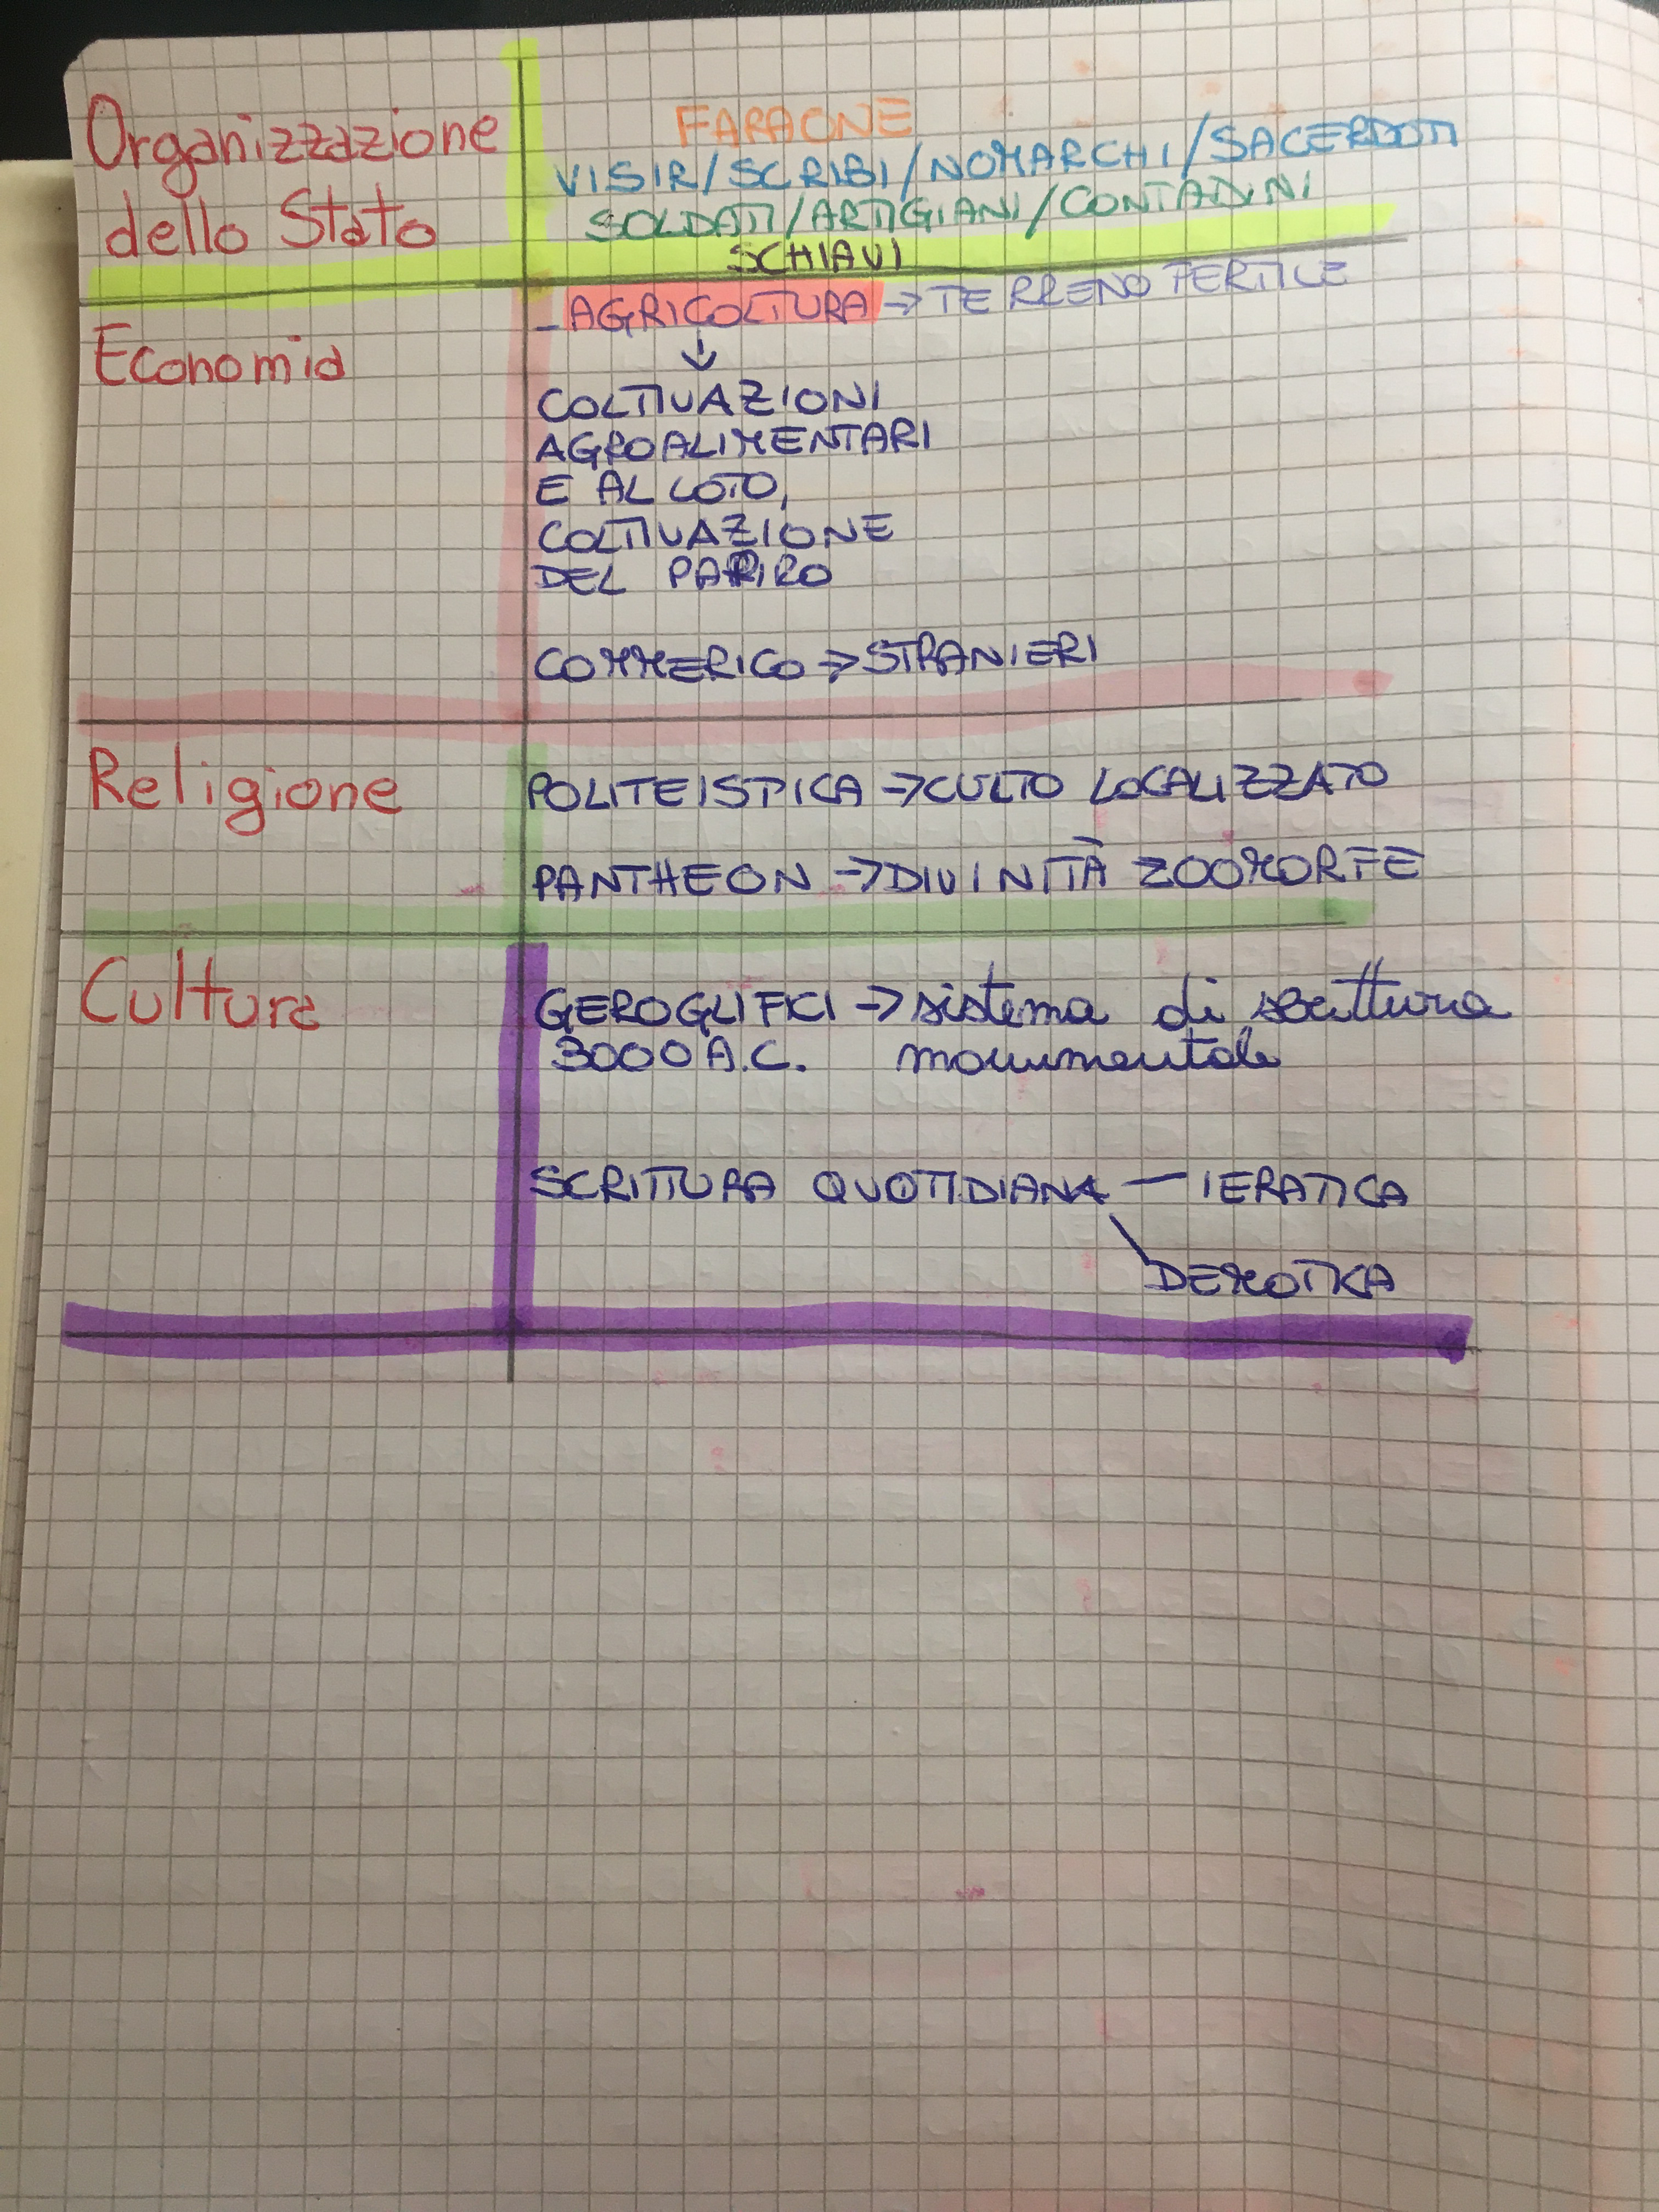 Organizzazione
dello Stato
FARAONE
VISIR/SCRIBI/NOMARCHI/SACERDOTI
SOLDATI/ARTIGIANI/CONTADINI
SCHIAVI
Economia
-AGRICOLTURA → TERRENO FERTILE
↓
COLTIVAZIONI
AGROALIMENTARI
E AL LOTO,
COLTIVAZIONE
DEL PAPIRO
COMMERICO → STRANIERI
Religione
POLITEISTICA → CULTO LOCALIZZATO
PANTHEON → DIVINITÀ ZOOMORFE
Cultura
GEROGLIFICI → sistema di scrittura
3000 A.C. monumentale
SCRITTURA QUOTIDIANA — IERATICA
DEMOTICA